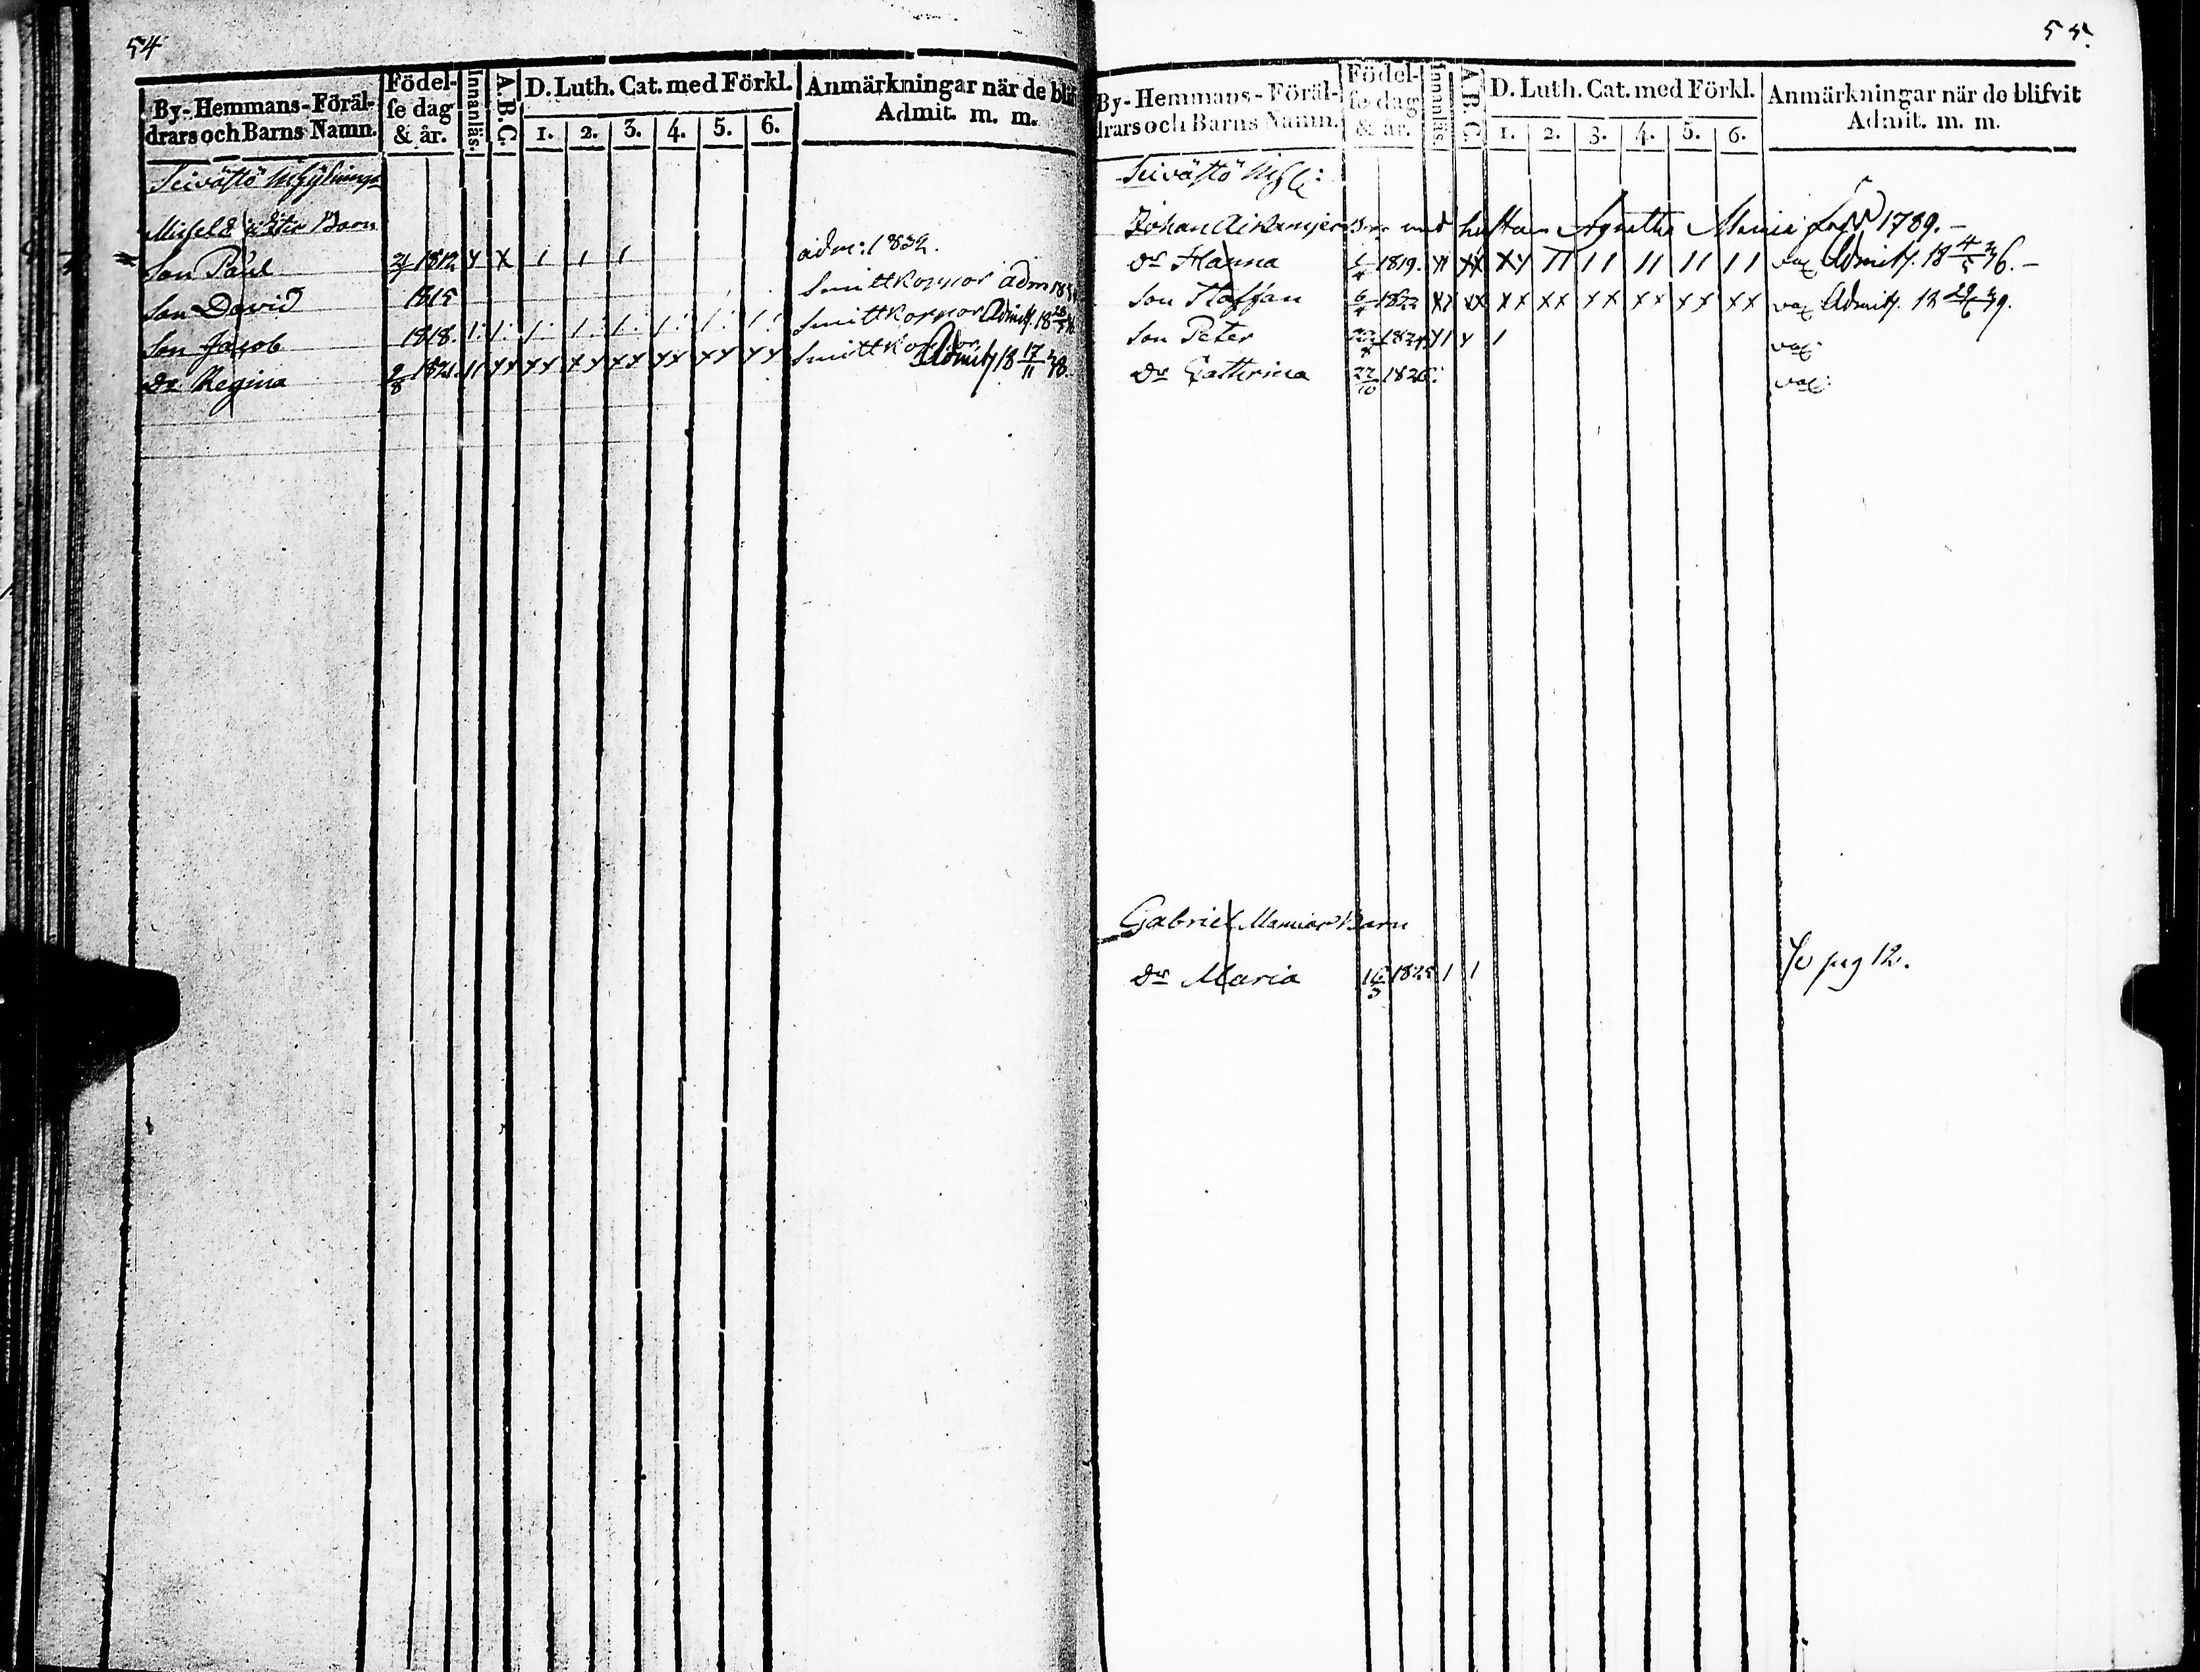 54
By-Hemmans-Föräl-
drars och Barns Namn.
Födel-
se dag
& år.
Innanläs.
A.B.C.
D. Luth. Cat. med Förkl.
1. 2. 3. 4. 5. 6.
Anmärkningar när de blif
Admit. m. m.
Seivästö
Barn
Son Paul 1812 y x 1 1 1 adm: 1832.
Son David 1815 Smittkoppor adm
Son Jacob 1818. 1: 1: 1: 1: 1: 1: 1: 1: Smittkoppor Admitt.
Dr Regina 9/8 1821. 11 xx xx xx xx xx xx xx Smittkoppor Admitt 18 17/11 38.
55.
By-Hemmans-Föräl-
drars och Barns Namn.
Födel-
se dag
& år.
Innanläs.
A.B.C.
D. Luth. Cat. med Förkl.
1. 2. 3. 4. 5. 6.
Anmärkningar när de blifvit
Admit. m. m.
Seivästö
Johan Barn med hustrun Agnetha Maria 1789.-
Dr Hanna 1819. xx xy 11 11 11 11 11 vax Admitt. 18 4/5 36.-
Son Staffan 6/4 1822 xx xx xx xx xx xx xx xx vax Admitt. 18 39.
Son Peter 1824 y1 y 1 vax:
Dr Catharina 22/10 1826: vax:
Gabriel Barn
Dr Maria 16/3 1825 1 1 pag 12.